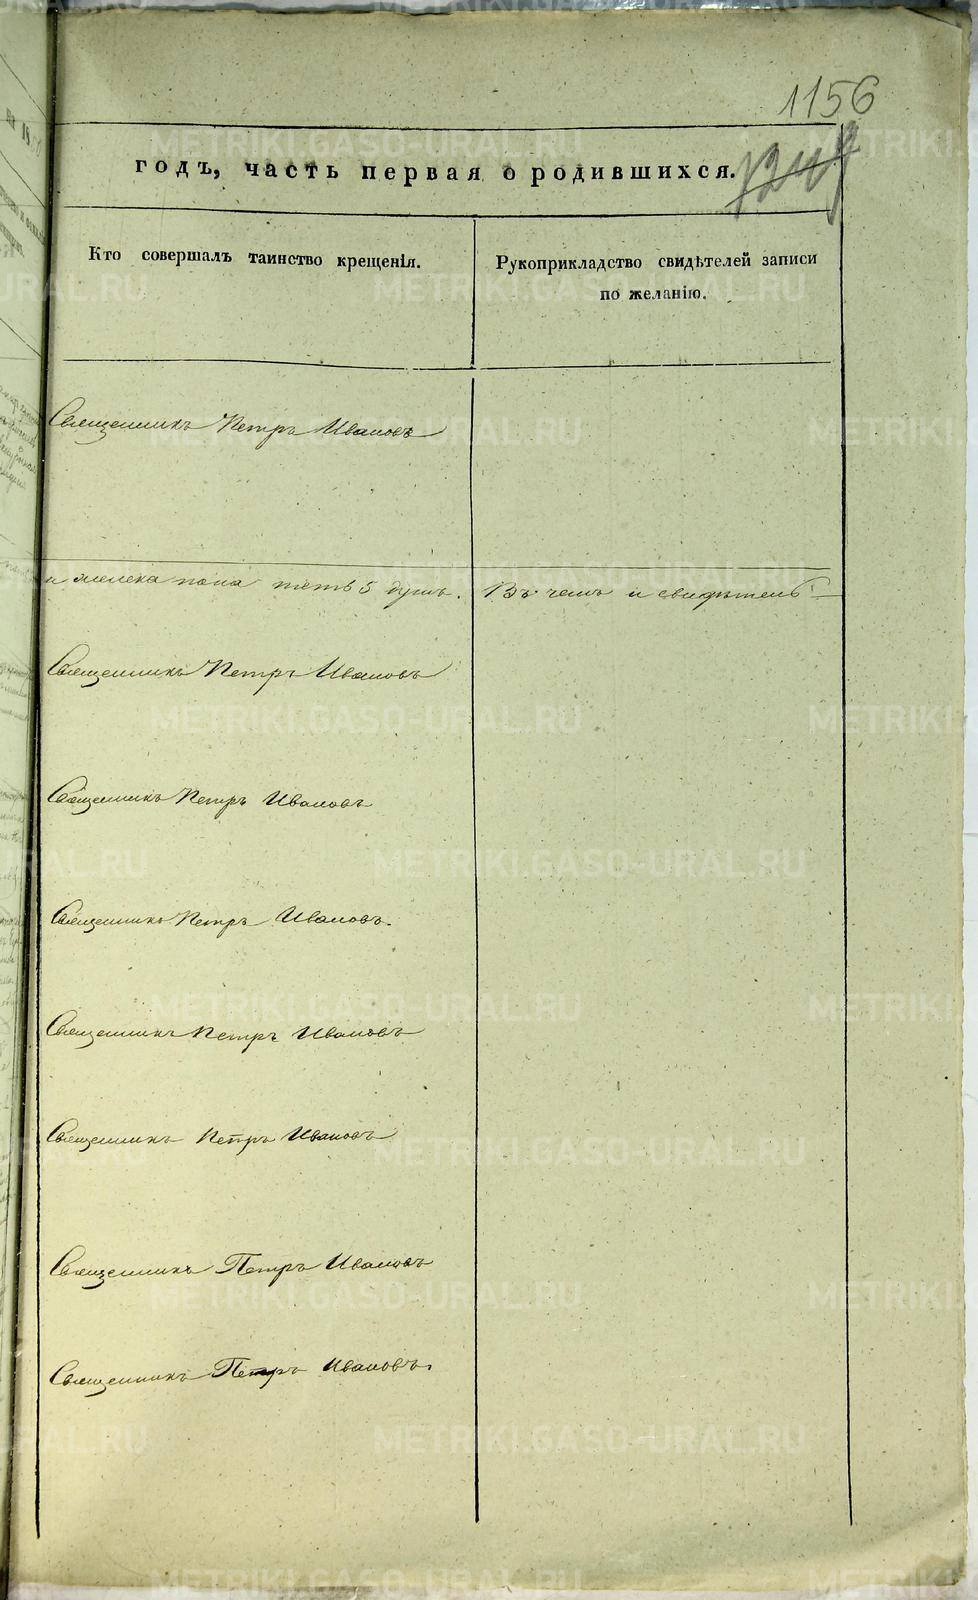 1156
годъ, часть первая о родившихся.
Кто совершалъ таинство крещенія.
Рукоприкладство свидѣтелей записи
по желанію.
Священникъ Петръ Ивановъ
и женска пола пять 5 душъ. Въ чемъ и свидѣтель
Священникъ Петръ Ивановъ
Священникъ Петръ Ивановъ
Священникъ Петръ Ивановъ.
Священникъ Петръ Ивановъ
Священникъ Петръ Ивановъ
Священникъ Петръ Ивановъ
Священникъ Петръ Ивановъ.
METRIKI.GASO-URAL.RU